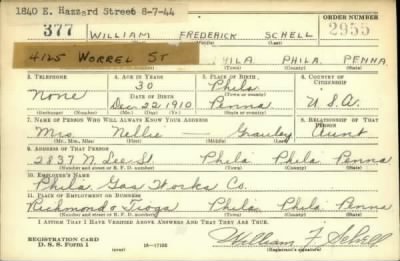 1840 E. Hazzard Street 8-7-44
ORDER NUMBER
377 WILLIAM FREDERICK SCHELL 2955
4125 WORREL ST PHILA PHILA. PENNA.
3. TELEPHONE 4. AGE IN YEARS 5. PLACE OF BIRTH 6. COUNTRY OF CITIZENSHIP
30 Phila.
None DATE OF BIRTH (Town or county)
Dec. 22, 1910 Penna U.S.A.
(Exchange) (Number) (Mo.) (Day) (Yr.) (State or country)
7. NAME OF PERSON WHO WILL ALWAYS KNOW YOUR ADDRESS 8. RELATIONSHIP OF THAT PERSON
Mrs. Nellie — Gauley Aunt
(Mr., Mrs., Miss) (First) (Middle) (Last)
9. ADDRESS OF THAT PERSON
2837 N. Lee St. Phila Phila Penna
(Number and street or R. F. D. number) (Town) (County) (State)
10. EMPLOYER'S NAME
Phila. Gas Works Co.
11. PLACE OF EMPLOYMENT OR BUSINESS
Richmond & Tioga Phila. Phila Penna
(Number and street or R. F. D. number) (Town) (County) (State)
I AFFIRM THAT I HAVE VERIFIED ABOVE ANSWERS AND THAT THEY ARE TRUE.
REGISTRATION CARD
D. S. S. Form 1 (over) 16—17105 William F Schell
(Registrant's signature)